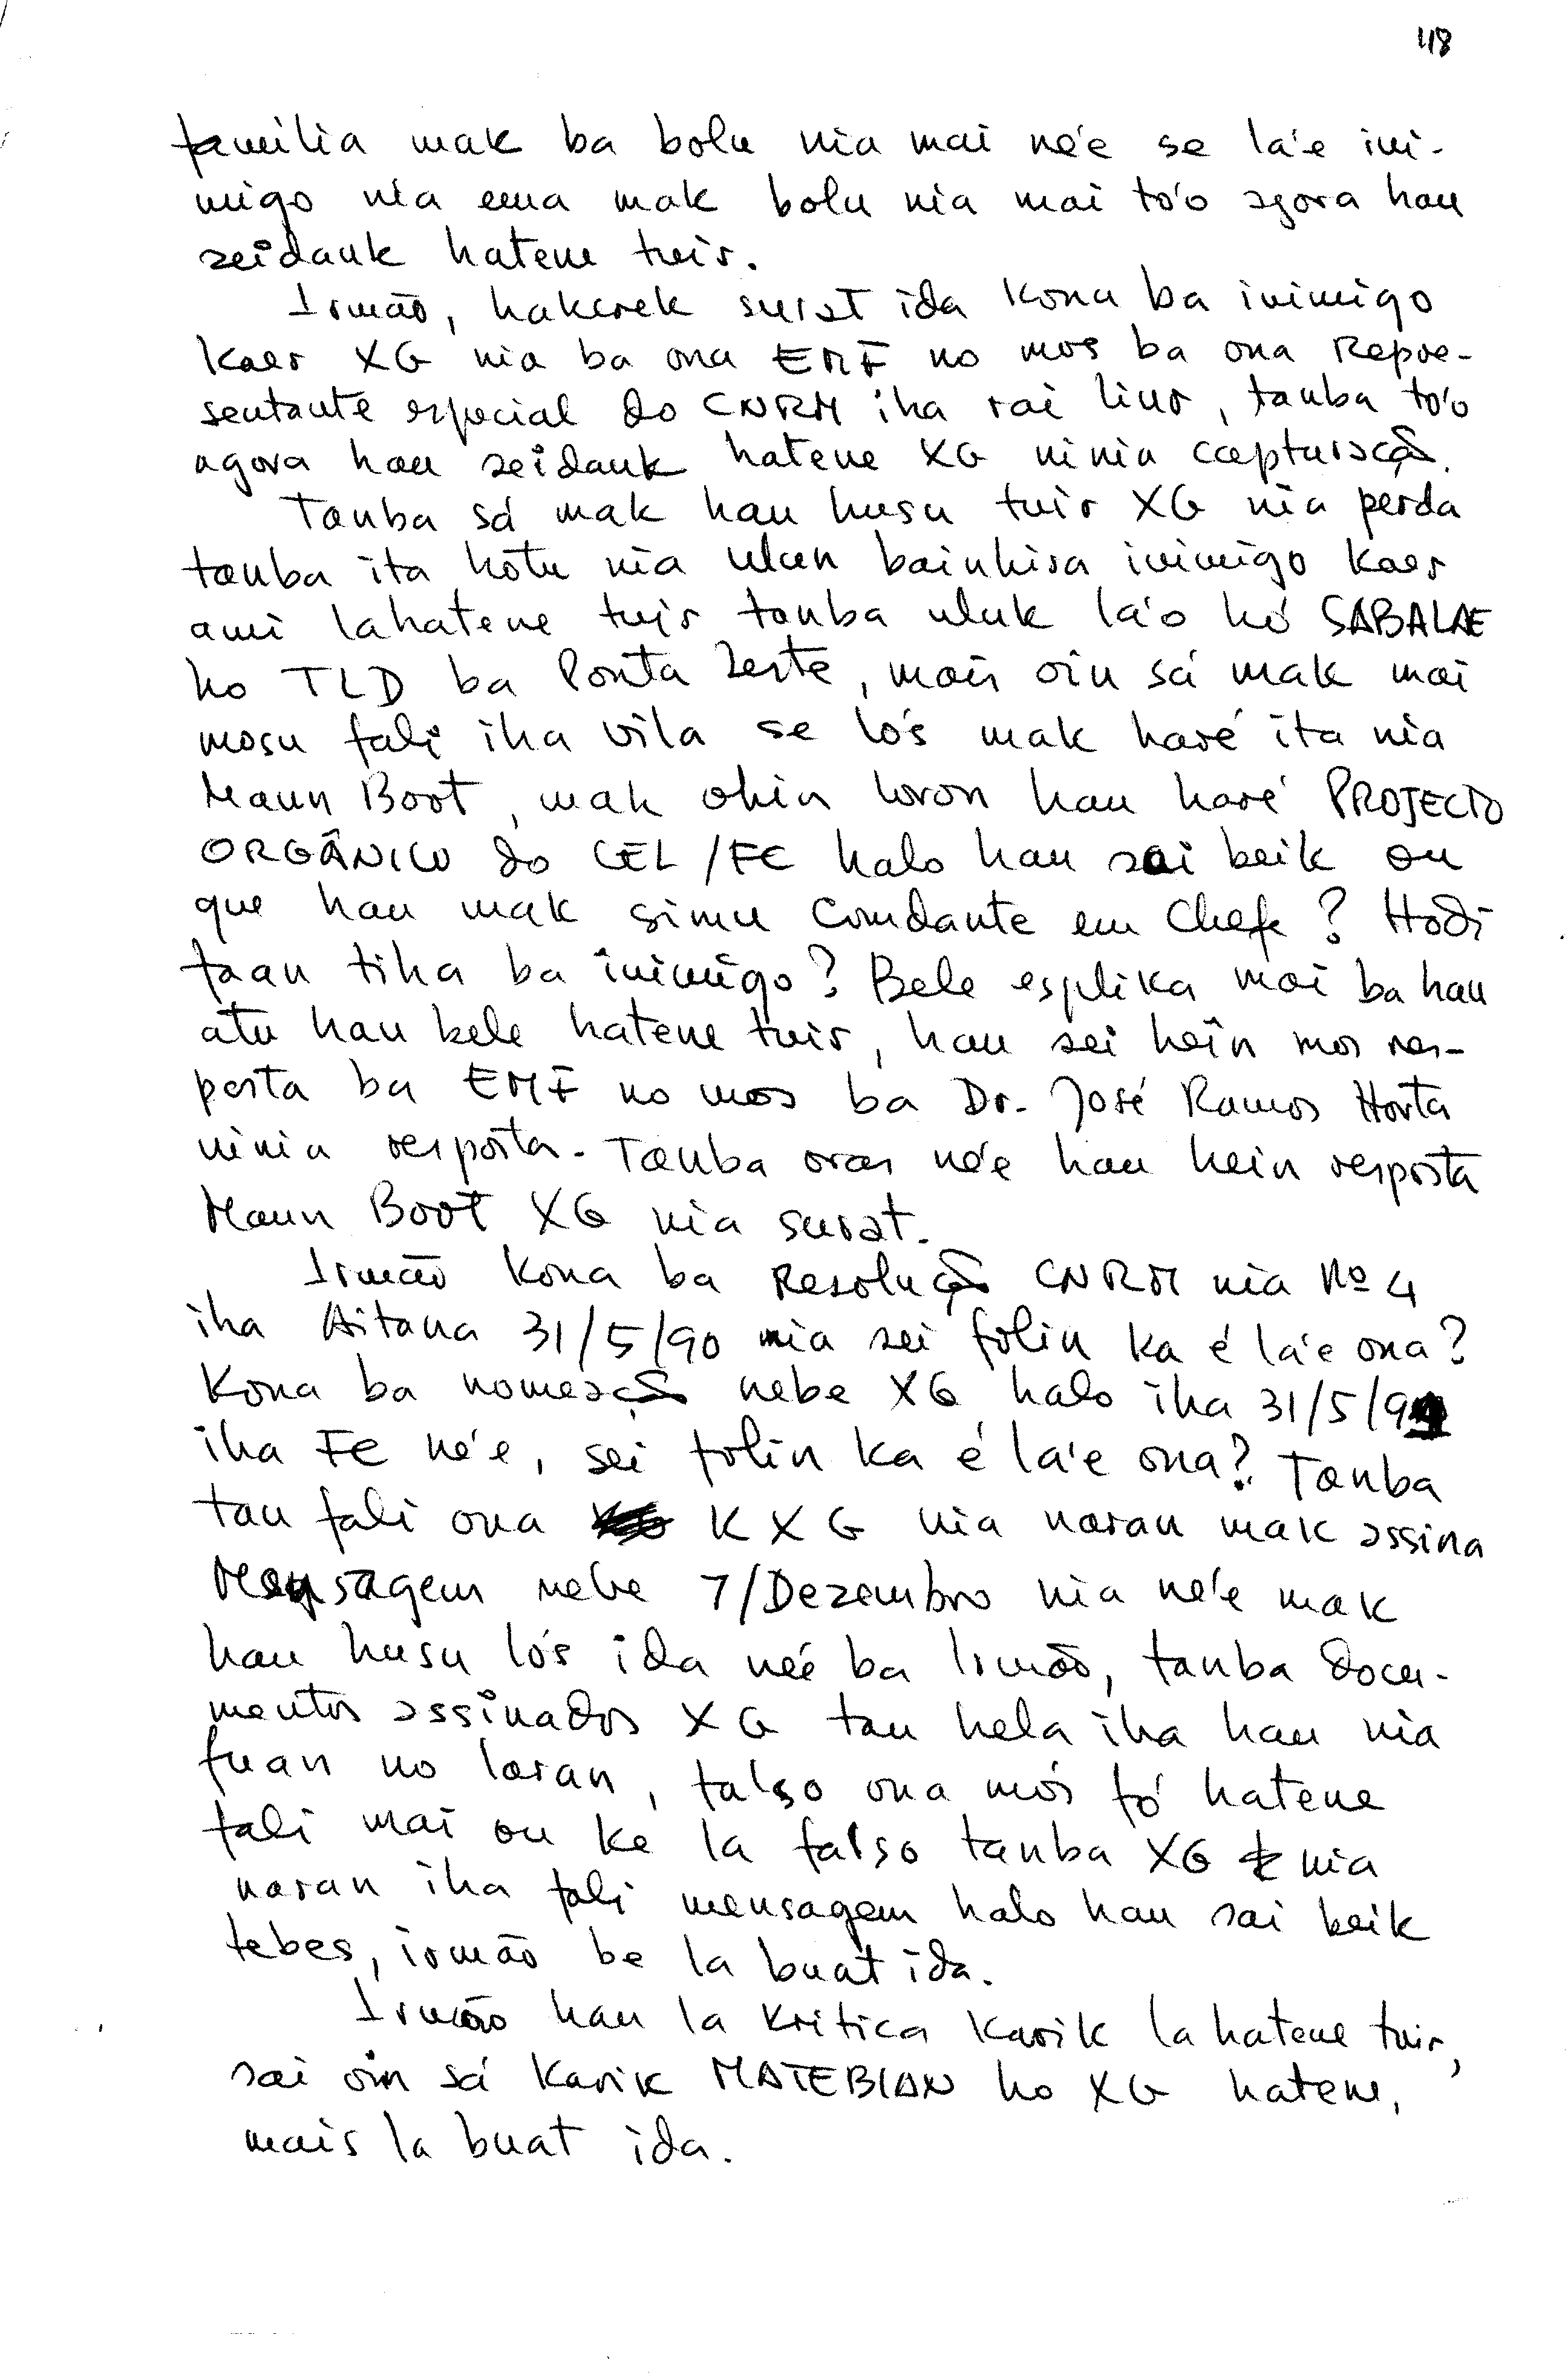 118
família mak ba bolu nia mai né'e se lá'e ini-
migo nia ema mak bolu nia mai tó'o agora hau
seidauk hatene tuir.
Irmão, hakerek surat ida kona ba inimigo
kaer XG nia ba ona EMF no mos ba ona Repre-
sentante especial do CNRM iha rai liur, tanba tó'o
agora hau seidauk hatene XG ninia capturação.
Tanba sá mak hau husu tuir XG nia perda
tanba ita hotu nia ulun bainhira inimigo kaer
ami lahatene tuir tanba uluk lá'o hó SABALAE
ho TLD ba Ponta Leste, mais oin sá mak mai
mosu fali iha vila se lós mak haré ita nia
Maun Boot, mak ohin loron hau haré PROJECTO
ORGÂNICO do CEL/FC halo hau sai beik ou
que hau mak simu Comdante em Chefe? Hodi
faan tiha ba inimigo? Bele esplika mai ba hau
atu hau bele hatene tuir, hau sei hein mos res-
posta ba EMF no mos ba Dr. José Ramos Horta
ninia resposta. Tanba oras né'e hau hein resposta
Maun Boot XG nia surat.
Irmão kona ba Resolução CNRM nia Nº 4
iha Aitana 31/5/90 nia sei folin ka é lá'e ona?
Kona ba nomeação nebe XG halo iha 31/5/91
iha FC né'e, sei folin ka é lá'e ona? Tanba
tau fali ona KXG nia naran mak assina
Mensagem nebe 7/Dezembro nia né'e mak
hau husu lós ida neé ba Irmão, tanba docu-
mentos assinados XG tau hela iha hau nia
fuan no laran, falso ona mós fó hatene
fali mai ou ke la falso tanba XG nia
naran iha fali mensagem halo hau sai beik
tebes, irmão be la buat ida.
Irmão hau la kritica karik la hatene tuir,
sai oin sá karik MATEBIAN ho XG hatene,
mais la buat ida.